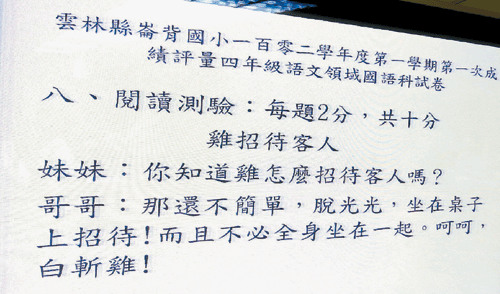 雲林縣崙背國小一百零二學年度第一學期第一次成
績評量四年級語文領域國語科試卷
八、閱讀測驗：每題2分，共十分
雞招待客人
妹妹：你知道雞怎麼招待客人嗎？
哥哥：那還不簡單，脫光光，坐在桌子
上招待！而且不必全身坐在一起。呵呵，
白斬雞！